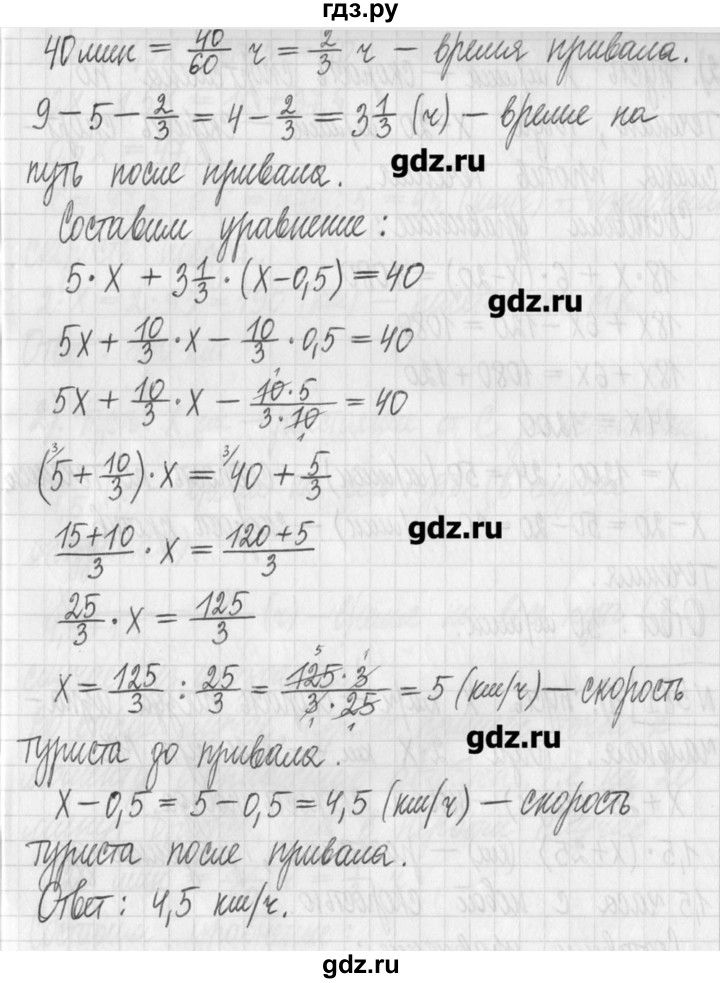 гдз.ру
40 мин = 40/60 ч = 2/3 ч – время привала.
9 – 5 – 2/3 = 4 – 2/3 = 3 1/3 (ч) – время на
путь после привала.
gdz.ru
Составим уравнение:
5 · x + 3 1/3 · (x – 0,5) = 40
gdz.ru
5x + 10/3 · x – 10/3 · 0,5 = 40
5x + 10/3 · x – 10 · 5/3 · 10 = 40
(5 + 10/3) · x = 40 + 5/3
15 + 10/3 · x = 120 + 5/3
gdz.ru
25/3 · x = 125/3
x = 125/3 : 25/3 = 125 · 3/3 · 25 = 5 (км/ч) – скорость
туриста до привала.
gdz.ru
x – 0,5 = 5 – 0,5 = 4,5 (км/ч) – скорость
туриста после привала.
Ответ: 4,5 км/ч.
gdz.ru